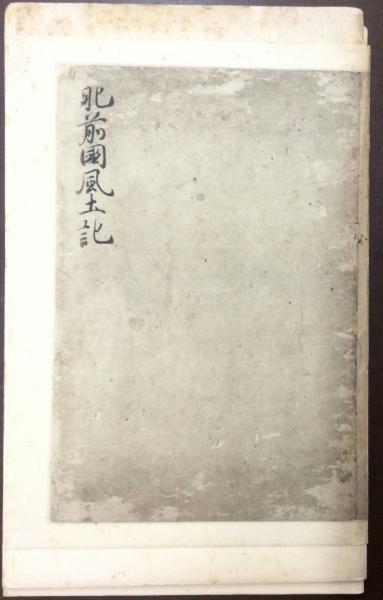 肥前國風土記